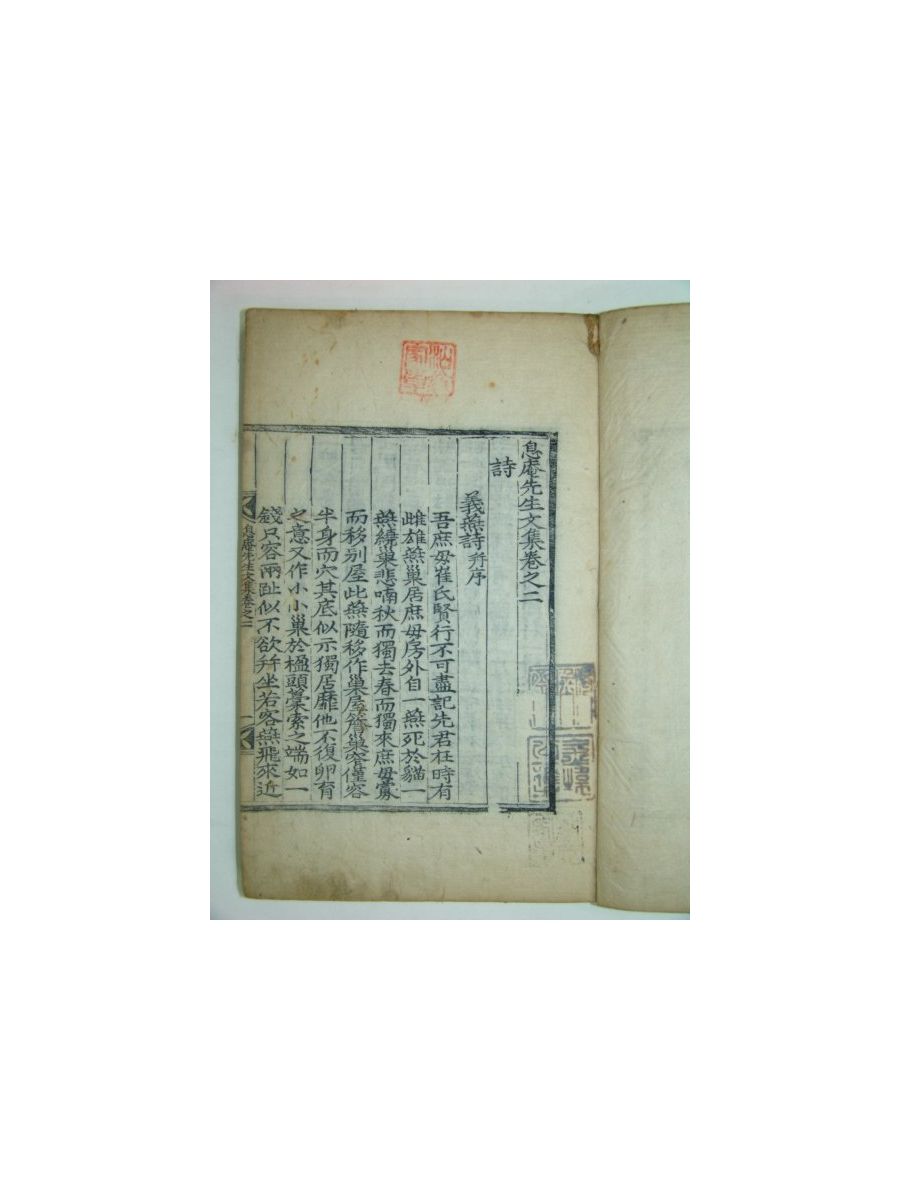 息庵先生文集卷之二
詩
義燕詩幷序
吾庶母崔氏賢行不可盡記先君在時有
雌雄燕巢居庶母房外自一燕死於貓一
燕繞巢悲喃秋而獨去春而獨來庶母寡
而移別屋此燕隨移作巢房簷巢容僅容
半身而穴其底似示獨居靡他不復卵育
之意又作小小巢於楹頭藁索之端如一
錢只容兩趾似不欲幷坐若客燕飛來近
息庵先生文集卷之二
一